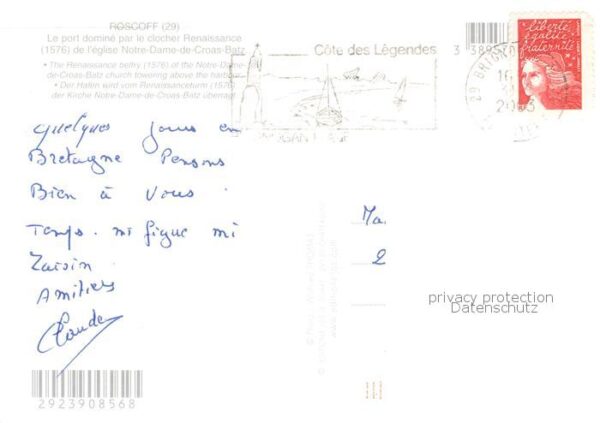 ROSCOFF (29)
Le port dominé par le clocher Renaissance
(1576) de l'église Notre-Dame-de-Croas-Batz
• The Renaissance belfry (1576) of the Notre-Dame-
de-Croas-Batz church towering above the harbour
• Der Hafen wird vom Renaissanceturm (1576)
der Kirche Notre-Dame-de-Croas-Batz überragt
Côte des Légendes
3 3389
liberté
égalité
fraternité
29 BRIGNOGAN
16
2003
Quelques jours en
Bretagne Pensons
Bien à vous.
Temps. mi figue mi
Raisin
Amitiés
Claude
Ma
2
privacy protection
Datenschutz
2923908568